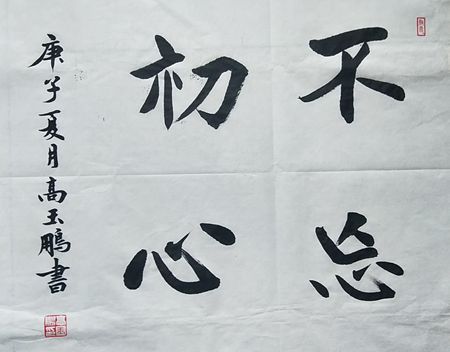 不忘
初心
庚子夏月高玉鵬書